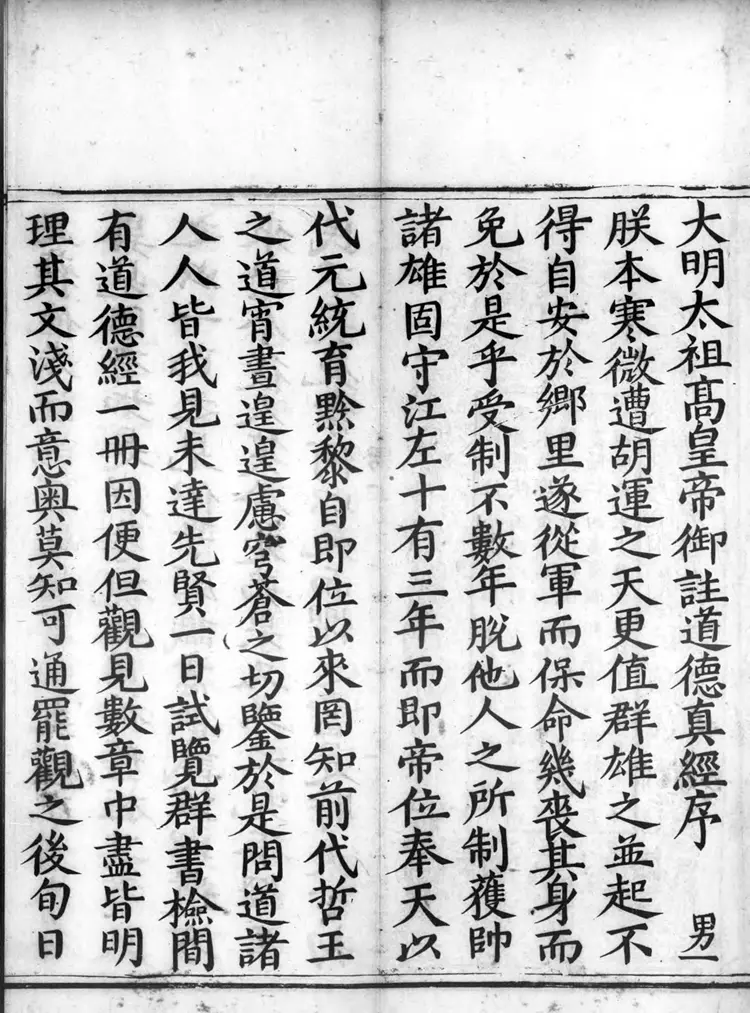 大明太祖髙皇帝御註道德真經序 男一
朕本寒微遭胡運之天更值群雄之並起不
得自安於鄉里遂從軍而保命幾喪其身而
免於是乎受制不數年脫他人之所制獲帥
諸雄固守江左十有三年而即帝位奉天以
代元統育黔黎自即位以來罔知前代哲王
之道宵晝遑遑慮穹蒼之切鑒於是問道諸
人人皆我見未達先賢一日試覽群書檢間
有道德經一冊因便但觀見數章中盡皆明
理其文淺而意奥莫知可通罷觀之後旬日